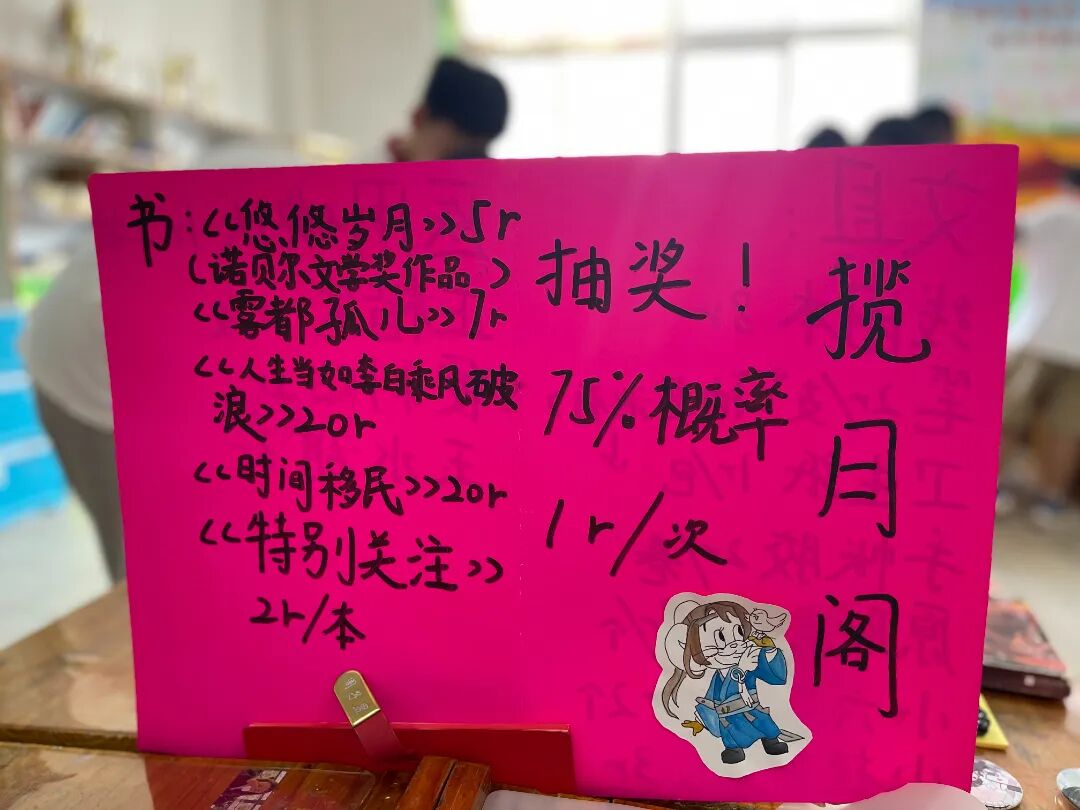 书：<<悠悠岁月>>5r
（诺贝尔文学奖作品）
<<雾都孤儿>>7r
<<人生当如李白乘风破
浪>>20r
<<时间移民>>20r
<<特别关注>>
2r/本
抽奖！
75%概率
1r/次
揽月阁